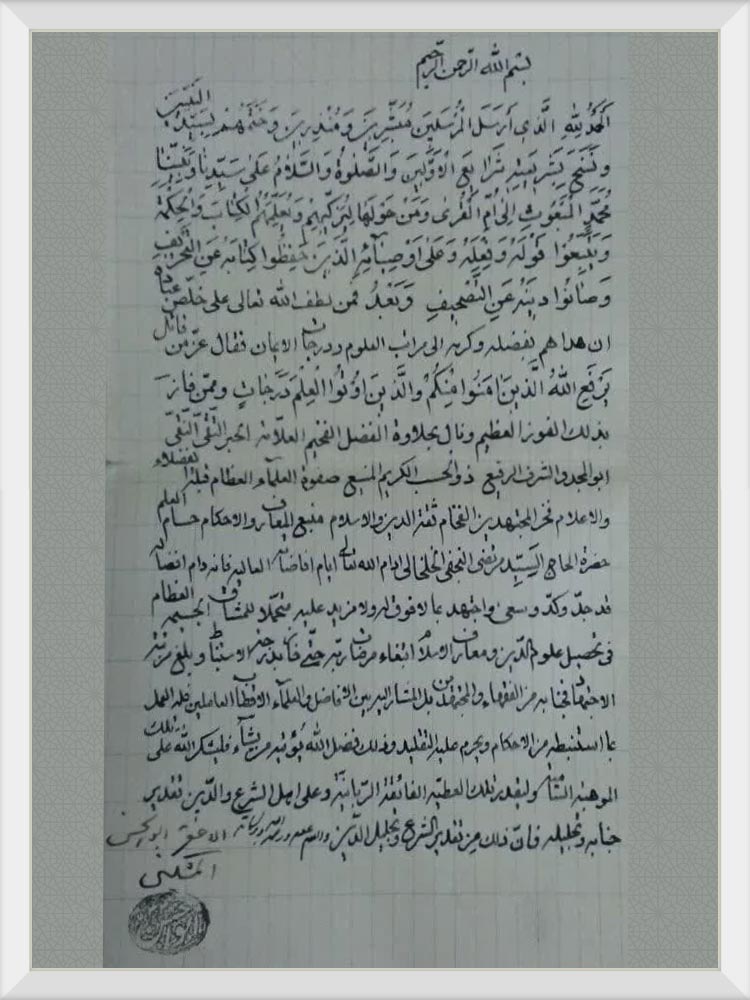 بسم الله الرحمن الرحيم
الحمد لله الذي ارسل المرسلين مبشرين ومنذرين وختمهم بسيد النبيين
ونسخ بشريعته شرايع الاولين والصلوة والسلام على سيدنا ونبينا
محمد المبعوث الى ام القرى ومن حولها ليزكيهم ويعلمهم الكتاب والحكمة
ويتبعوا قوله وفعله وعلى اوصيائه الذين حفظوا كتابه عن التحريف
وصانوا دينه عن التصحيف وبعد فمن لطف الله تعالى على خلص عباده
ان هداهم بفضله وكرمه الى مراتب العلوم ودرجات الايمان فقال عز من قائل
يرفع الله الذين امنوا منكم والذين اوتوا العلم درجات وممن فاز
بذلك الفوز العظيم ونال بحلاوة الفضل الفخيم العلامة الحبر التقي النقي
ابو المجد والشرف الرفيع ذو الحسب الكريم المنيع صفوة العلماء العظام قبلة الفضلاء
والاعلام فخر المجتهدين الفخام ثقة الدين والاسلام منبع المعارف والاحكام حسام العلم
حضرة الحاج السيد مرتضى النجفي الخلخالي ادام الله تعالى ايام افاضاته العاليه فانه دام افضاله
قد جد وكد وسعى واجتهد بما لا فوق له ولا مزيد عليه متحملا للمشاق العظام الجسيمه
في تحصيل علوم الدين ومعارف الاسلام ابتغاء مرضات ربه حتى فاز بدرجة الاستنباط وبلغ مرتبة
الاجتهاد فجنابه من الفقهاء والمجتهدين بل المشار اليه بين الافاضل والعلماء الاقطاب العاملين فله العمل
بما استنبطه من الاحكام ويحرم عليه التقليد وذلك فضل الله يؤتيه من يشاء فليشكر الله على تلك
الموهبة السامية وليقدر تلك العطية الفائقة الربانية وعلى اهل الشرع والدين تقدير
جنابه وتجليله فان ذلك من تقدير الشرع وتجليل الدين والسلام عليه ورحمة الله وبركاته الاحقر ابو الحسن
المشكيني